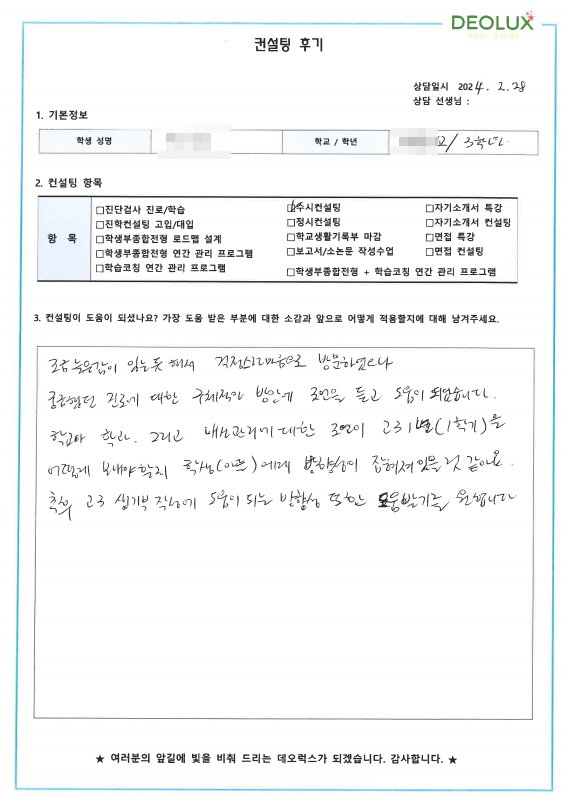 DEOLUX
컨설팅 후기
상담일시 2024. 2. 28
상담 선생님 :
1. 기본정보
학생 성명
학교 / 학년
/ 3학년
2. 컨설팅 항목
항 목
□진단검사 진로/학습
□진학컨설팅 고입/대입
□학생부종합전형 로드맵 설계
□학생부종합전형 연간 관리 프로그램
□학습코칭 연간 관리 프로그램
□수시컨설팅
□정시컨설팅
□학교생활기록부 마감
□보고서/소논문 작성수업
□학생부종합전형 + 학습코칭 연간 관리 프로그램
□자기소개서 특강
□자기소개서 컨설팅
□면접 특강
□면접 컨설팅
3. 컨설팅이 도움이 되셨나요? 가장 도움 받은 부분에 대한 소감과 앞으로 어떻게 적용할지에 대해 남겨주세요.
조금 늦은감이 있는듯 해서 걱정스러운마음으로 방문하였으나
궁금했던 진로에 대한 구체적인 방안에 조언을 듣고 도움이 되었습니다.
학교와 학과. 그리고 내신관리에 대한 조언이 고3 1학기(1학기)을
어떻게 보내야할지 학생(아들)에게 방향성이 잡혀져 있을 것 같아요.
추후 고3 생기부 작성에 도움이 되는 방향성 또한 도움받기를 원합니다
★ 여러분의 앞길에 빛을 비춰 드리는 데오럭스가 되겠습니다. 감사합니다. ★